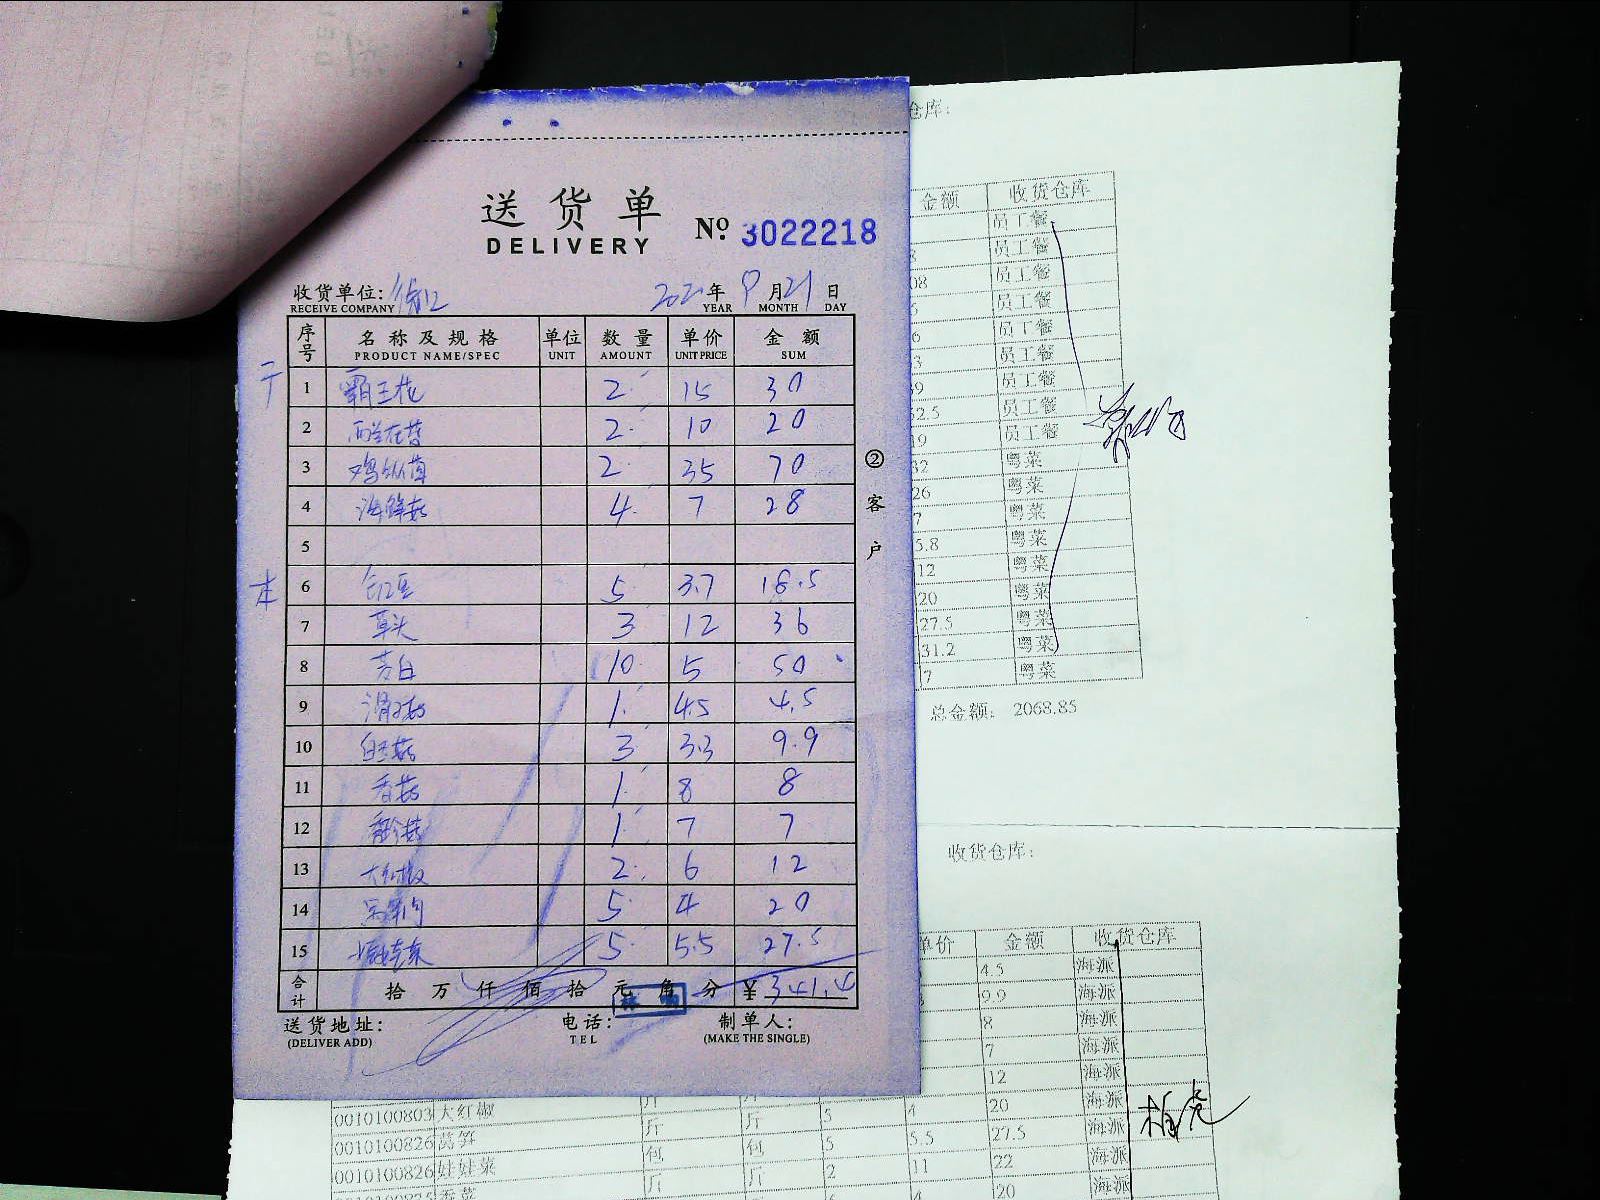 送货单
DELIVERY
№ 3022218
收货单位: 徐汇
RECEIVE COMPANY
2021年 9月21日
YEAR MONTH DAY
序号 名称及规格 单位 数量 单价 金额
PRODUCT NAME/SPEC UNIT AMOUNT UNIT PRICE SUM
1 霸王花 2 15 30
2 西兰花苔 2 10 20
3 鸡纵菌 2 35 70
4 海鲜菇 4 7 28
5
本
6 5 3.7 18.5
7 草头 3 12 36
8 茭白 10 5 50
9 滑子菇 1 4.5 4.5
10 白玉菇 3 3.3 9.9
11 香菇 1 8 8
12 1 7 7
13 大红椒 2 6 12
14 5 4 20
15 娃娃菜 5 5.5 27.5
合计 拾 万 仟 佰 拾 元 角 分 ¥ 341.4
送货地址:
(DELIVER ADD)
电话:
TEL
制单人:
(MAKE THE SINGLE)
②客户
仓库:
金额 收货仓库
员工餐
员工餐
08 员工餐
员工餐
6 员工餐
3 员工餐
39 员工餐
52.5 员工餐
19 员工餐
32 粤菜
26 粤菜
7 粤菜
5.8 粤菜
12 粤菜
20 粤菜
27.5 粤菜
31.2 粤菜
7 粤菜
总金额: 2068.85
收货仓库:
单价 金额 收货仓库
4.5 海派
9.9 海派
8 海派
7 海派
12 海派
0010100803 大红椒 斤 斤 5 4 20 海派
0010100826 莴笋 斤 斤 5 5.5 27.5 海派
0010100826 娃娃菜 包 包 2 11 22 海派
斤 斤 4 20 海派